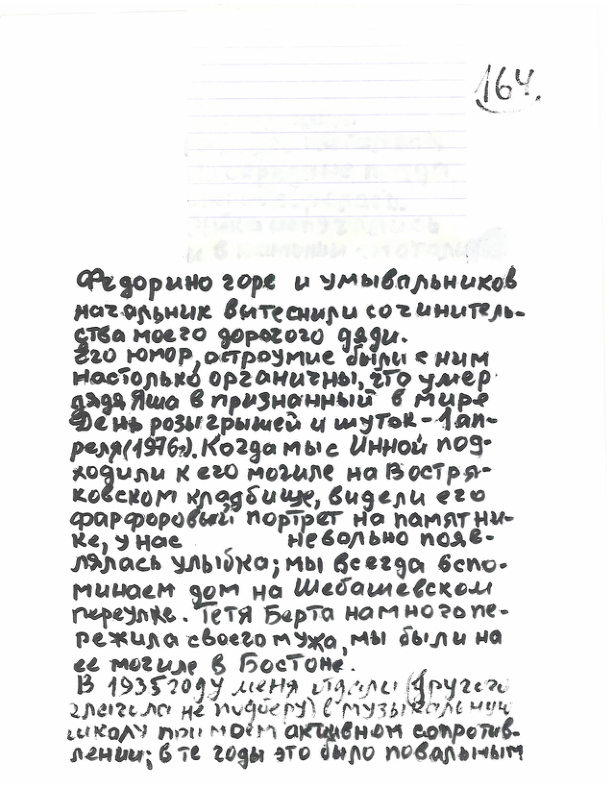 164.
Федорино горе и умывальников
начальник вытеснили сочинитель-
ства моего дорогого дяди.
Его юмор, остроумие были с ним
настолько органичны, что умер
дядя Яша в признанный в мире
День розыгрышей и шуток - 1 ап-
реля (1976г). Когда мы с Инной под-
ходили к его могиле на Востря-
ковском кладбище, видели его
фарфоровый портрет на памятни-
ке, у нас невольно появ-
лялась улыбка; мы всегда вспо-
минаем дом на Шебашевском
переулке. Тетя Берта намного пе-
режила своего мужа, мы были на
ее могиле в Бостоне.
В 1935 году меня отдали (другого
глагола не подберу) в музыкальную
школу при моем активном сопротив-
лении; в те годы это было повальным